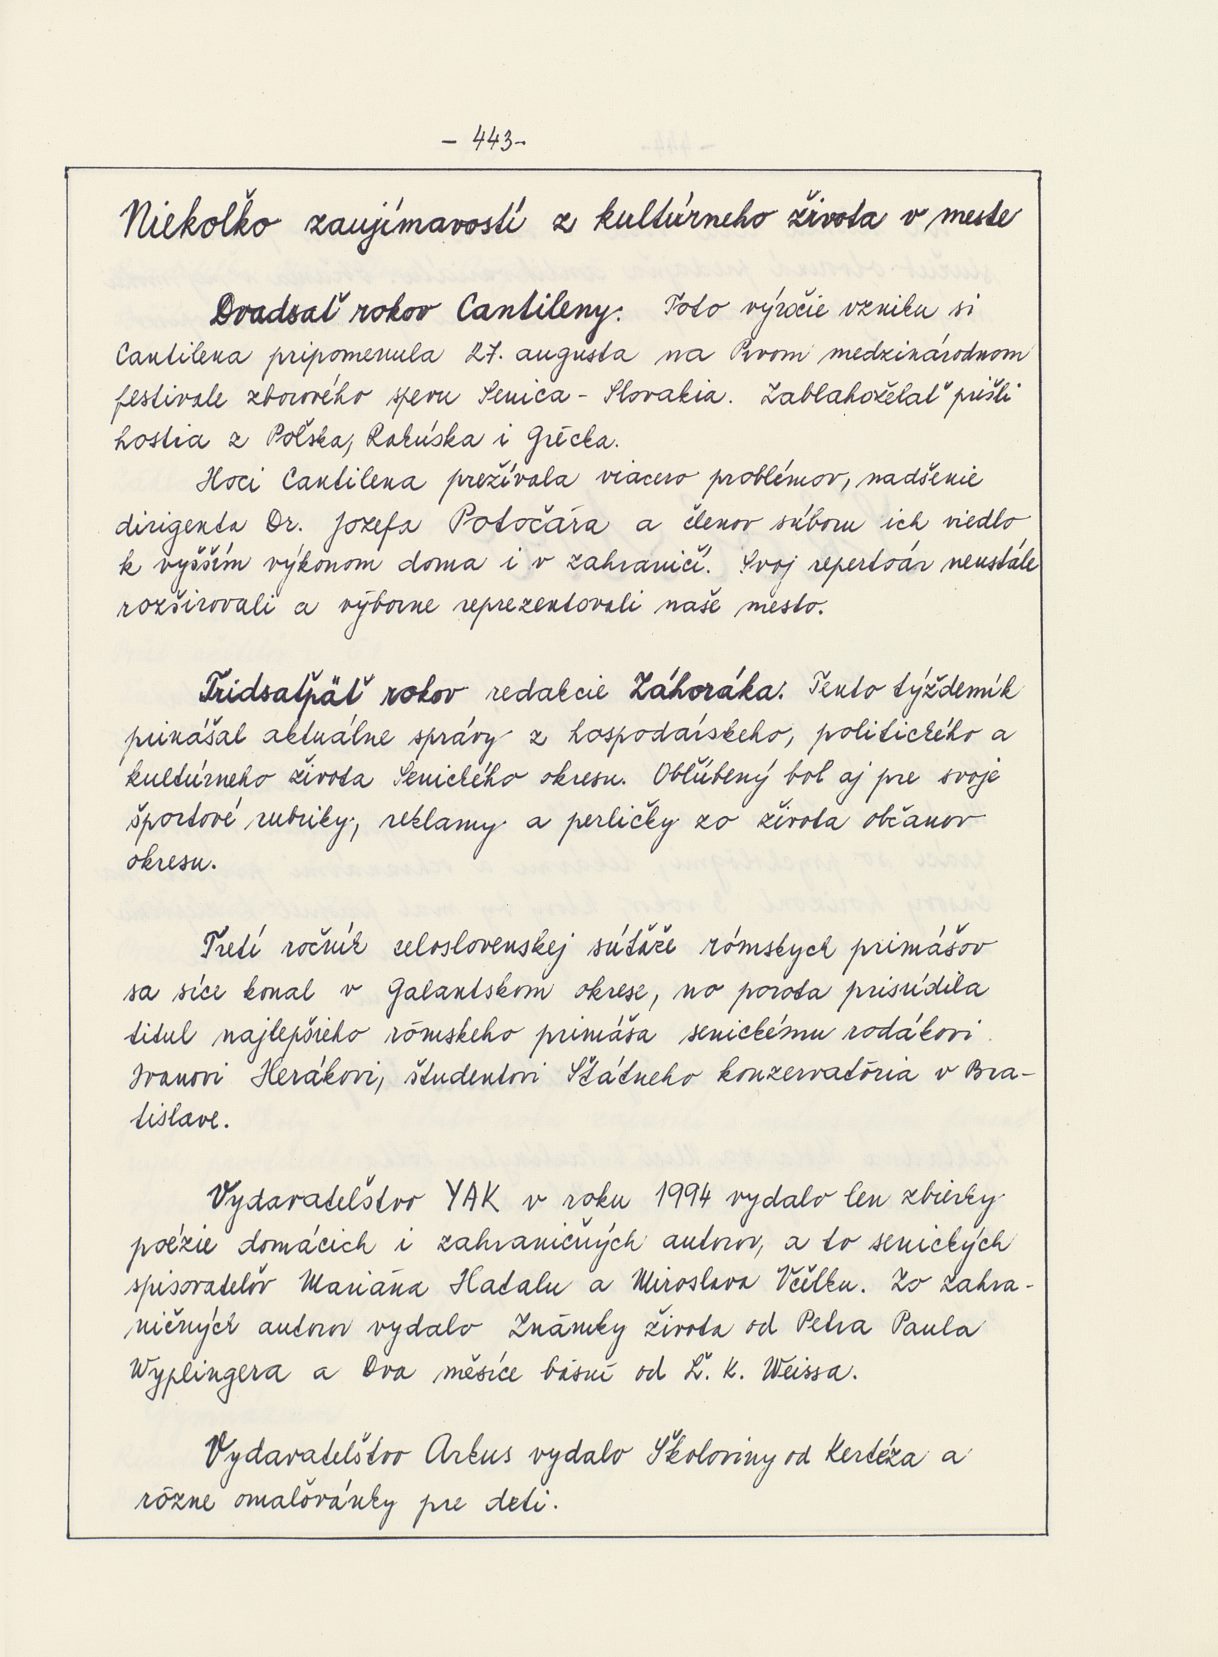 - 443-
Niekoľko zaujímavostí z kultúrneho života v meste
Dvadsať rokov Cantileny. Toto výročie vzniku si
Cantilena pripomenula 27. augusta na Prvom medzinárodnom
festivale zborového spevu Senica - Slovakia. Zablahoželať prišli
hostia z Poľska, Rakúska i Grécka.
Hoci Cantilena prežívala viacero problémov, nadšenie
dirigenta Dr. Jozefa Potočára a členov súboru ich viedlo
k vyšším výkonom doma i v zahraničí. Svoj repertoár neustále
rozširovali a výborne reprezentovali naše mesto.
Tridsaťpäť rokov redakcie Záhoráka. Tento týždenník
prinášal aktuálne správy z hospodárskeho, politického a
kultúrneho života Senického okresu. Obľúbený bol aj pre svoje
športové rubriky, reklamy a perličky zo života občanov
okresu.
Tretí ročník celoslovenskej súťaže rómskych primášov
sa síce konal v Galantskom okrese, no porota prisúdila
titul najlepšieho rómskeho primáša senickému rodákovi
Ivanovi Herákovi, študentovi Štátneho konzervatória v Bra-
tislave.
Vydavateľstvo YAK v roku 1994 vydalo len zbierky
poézie domácich i zahraničných autorov, a to senických
spisovateľov Mariána Hatalu a Miroslava Včělku. Zo zahra-
ničných autorov vydalo Známky života od Petra Paula
Wyplingera a Dva měsíce básní od Ľ. K. Weissa.
Vydavateľstvo Arkus vydalo Školoviny od Kertéza a
rôzne omaľovánky pre deti.